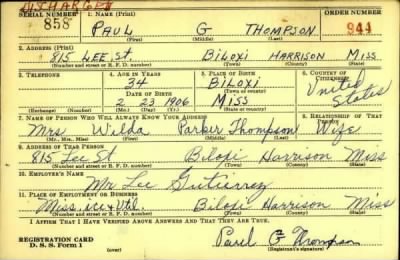 DISCHARGED
SERIAL NUMBER 1. NAME (Print) ORDER NUMBER
858 PAUL G THOMPSON 944
(First) (Middle) (Last)
2. ADDRESS (Print)
815 LEE St. BILOXI HARRISON MISS
(Number and street or R. F. D. number) (Town) (County) (State)
3. TELEPHONE 4. AGE IN YEARS 5. PLACE OF BIRTH 6. COUNTRY OF CITIZENSHIP
34 BILOXI United States
DATE OF BIRTH (Town or county)
2 23 1906 MISS
(Exchange) (Number) (Mo.) (Day) (Yr.) (State or country)
7. NAME OF PERSON WHO WILL ALWAYS KNOW YOUR ADDRESS 8. RELATIONSHIP OF THAT PERSON
Mrs Wilda Parker Thompson Wife
(Mr., Mrs., Miss) (First) (Middle) (Last)
9. ADDRESS OF THAT PERSON
815 Lee St Biloxi Harrison Miss
(Number and street or R. F. D. number) (Town) (County) (State)
10. EMPLOYER'S NAME
Mr Lee Gutierrez
11. PLACE OF EMPLOYMENT OR BUSINESS
Miss. ice & Util. Biloxi Harrison Miss
(Number and street or R. F. D. number) (Town) (County) (State)
I AFFIRM THAT I HAVE VERIFIED ABOVE ANSWERS AND THAT THEY ARE TRUE.
REGISTRATION CARD
D. S. S. Form 1 (over) Paul G Thompson
(Registrant's signature)